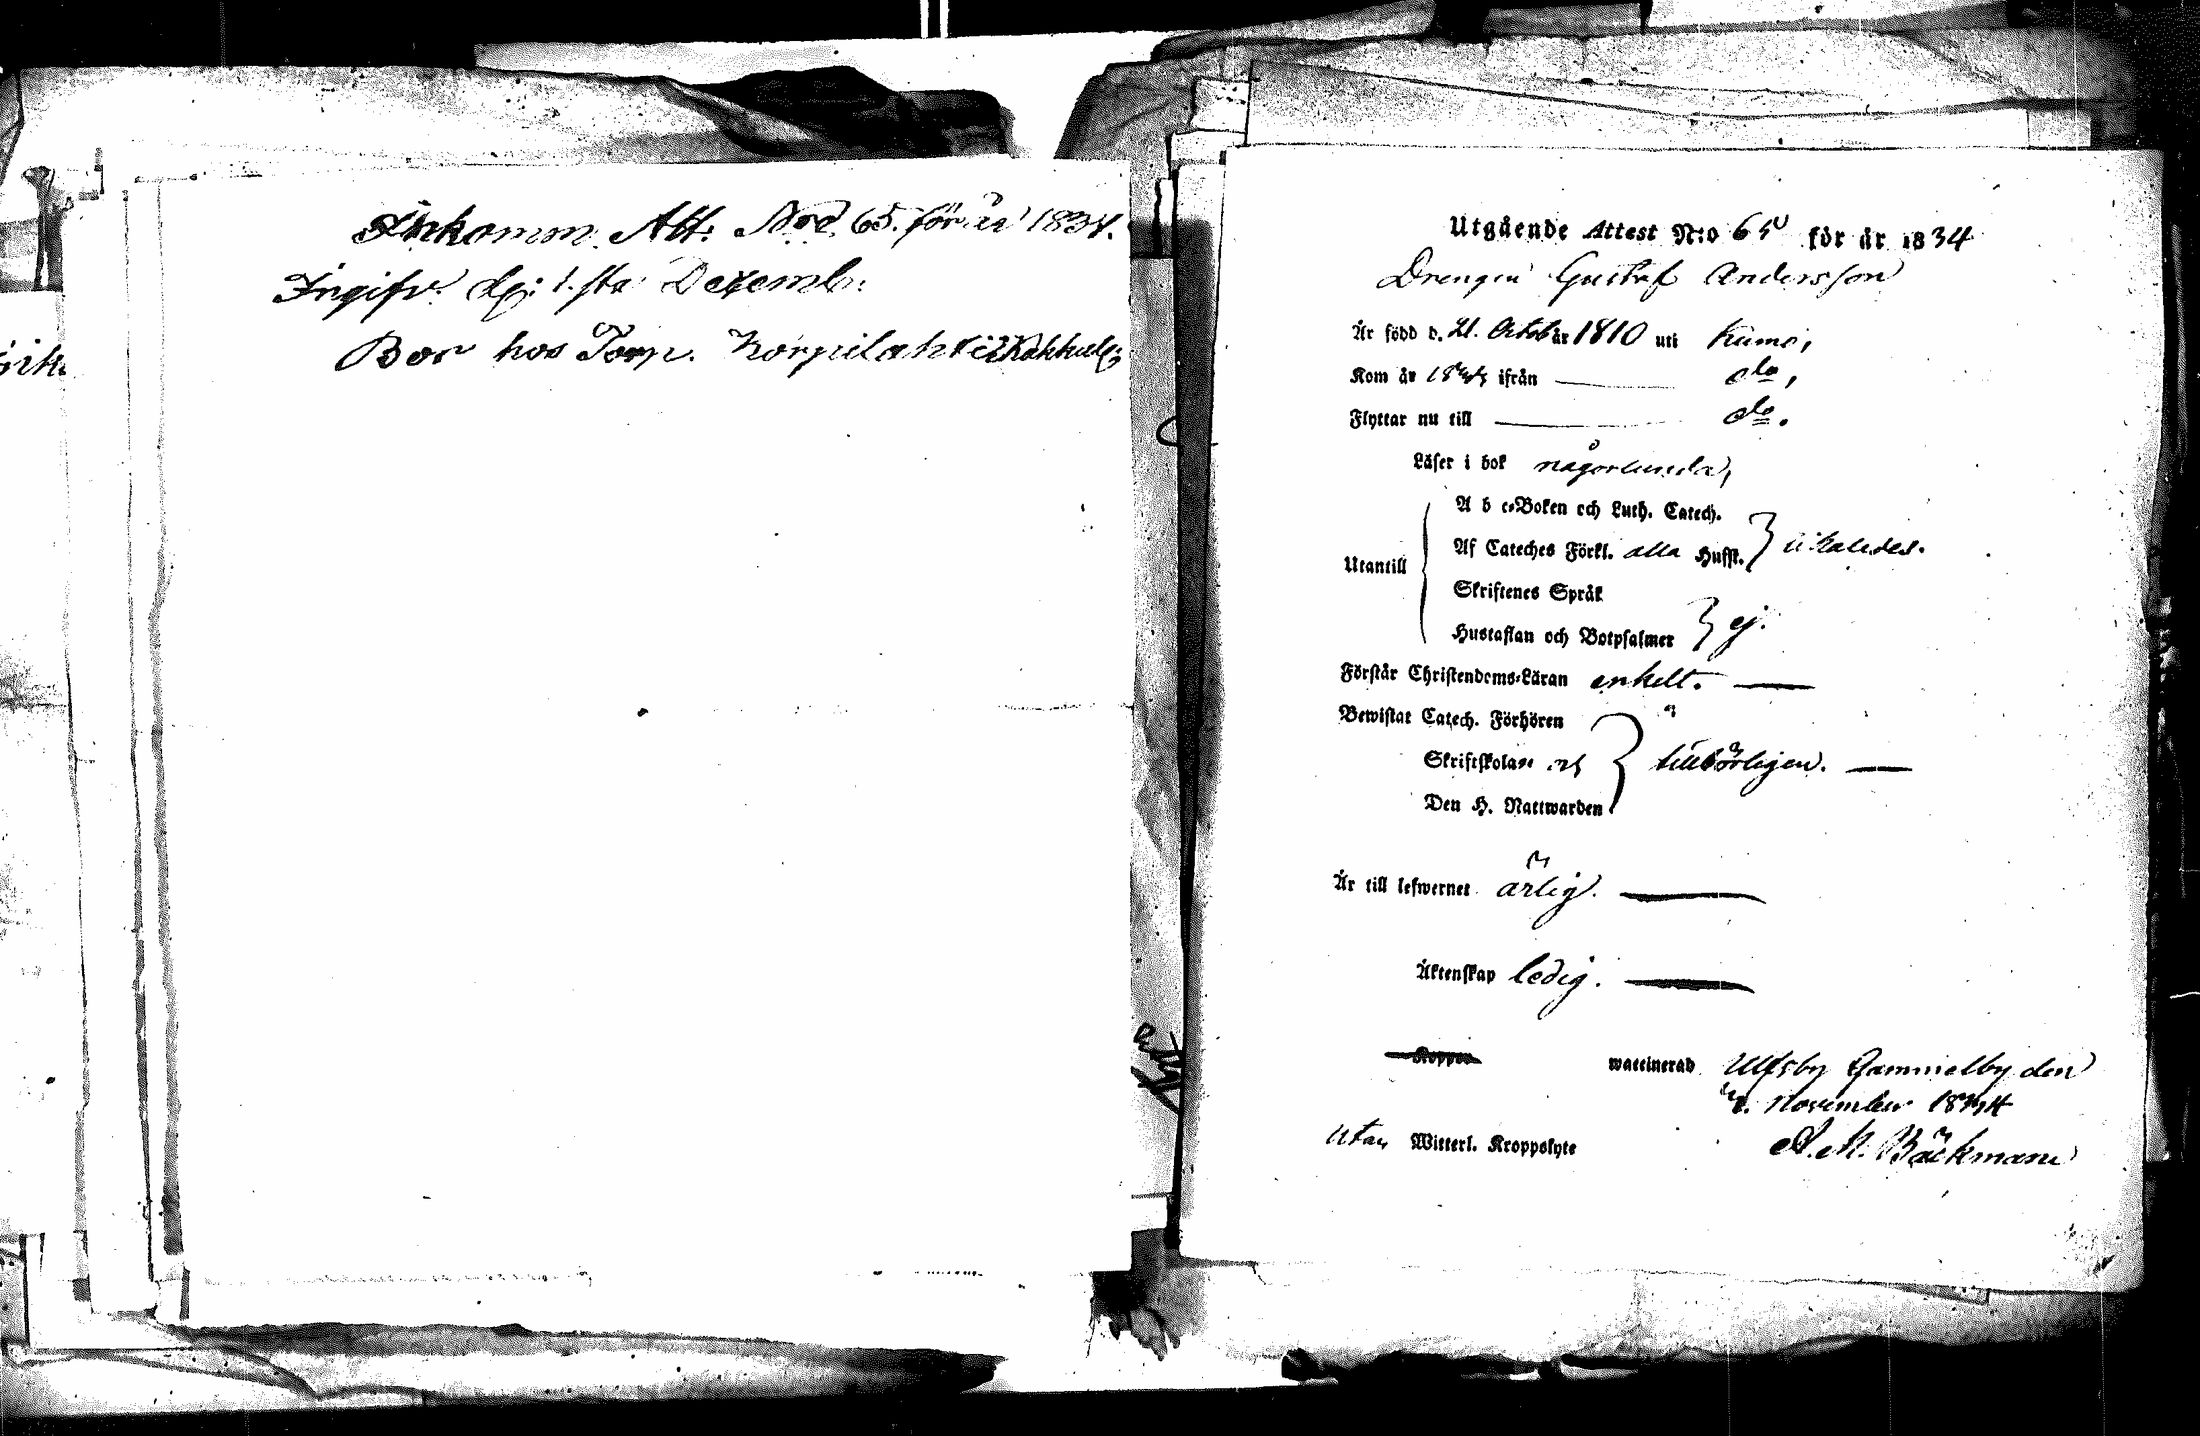 Inkomm. Att: Nro 65. för år 1834.
Ingifv. d: 1.sta Decemb:
Bor hos Torp. Korpilahti i Kakkul:
Utgående Attest N:o 65 för år 1834
Drengen Gustaf Andersson
Är född d. 21. Octob år 1810 uti Kumo,
Kom år ifrån do,
Flyttar nu till do.
Läser i bok någorlunda,
A b c-Boken och Luth. Catech.
Af Cateches Förkl. alla Hufst. } likaledes.
Utantill
Skriftenes Språk
Hustaflan och Botpsalmer } ej.
Förstår Christendoms-Läran enkelt.
Bewistat Catech. Förhören
Skriftskolan och } tillbörligen.
Den H. Nattwarden
Är till lefwernet ärlig.
Äktenskap ledig.
Koppor waccinerad Ulfsby Gammelby den
November 1834
utan Witterl. Kroppslyte A. M. Bäckman